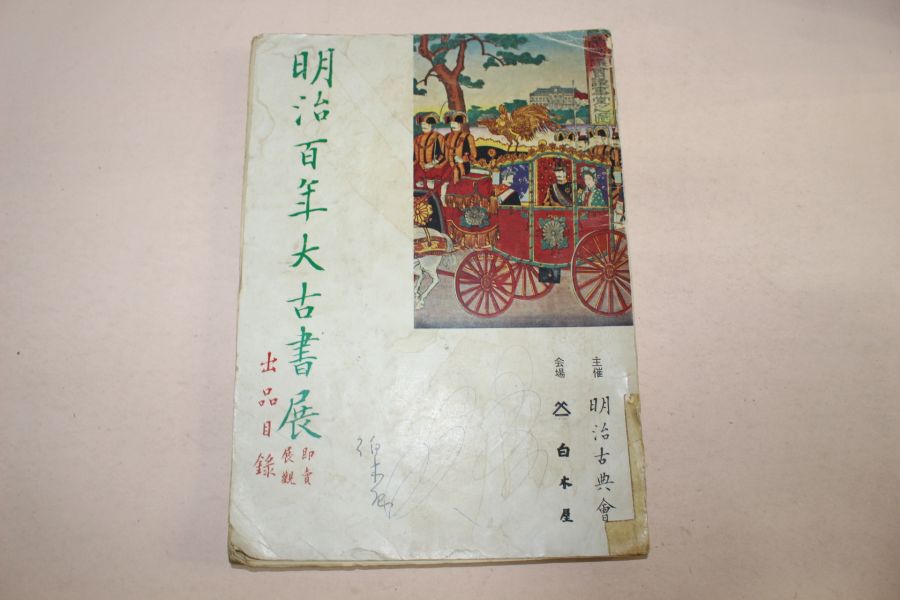 明治百年大古書展
出品目錄
即売
展観
主催 明治古典會
会場 白木屋